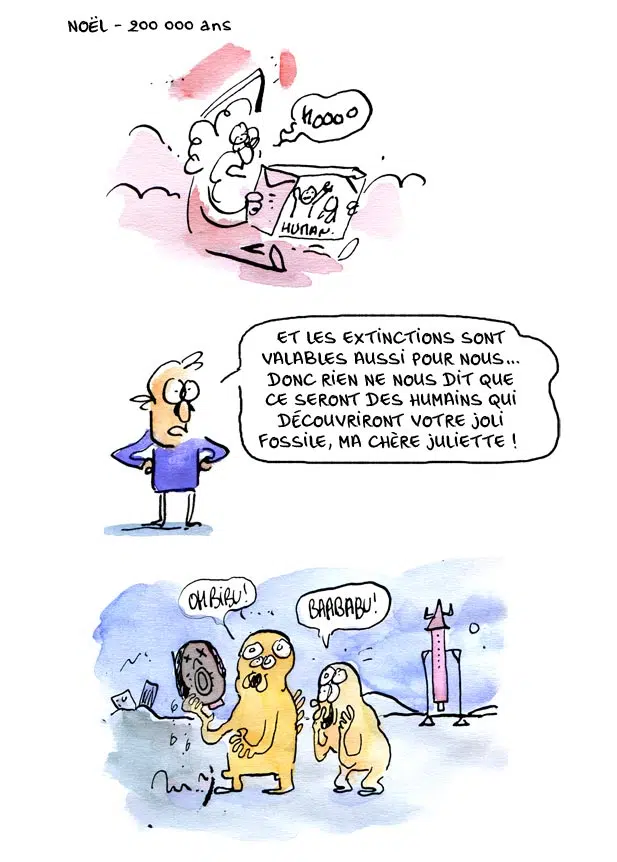 NOËL - 200 000 ans
HOOOO
HUMAN.
ET LES EXTINCTIONS SONT
VALABLES AUSSI POUR NOUS...
DONC RIEN NE NOUS DIT QUE
CE SERONT DES HUMAINS QUI
DÉCOUVRIRONT VOTRE JOLI
FOSSILE, MA CHÈRE JULIETTE !
OH BIBU!
BAABABU!